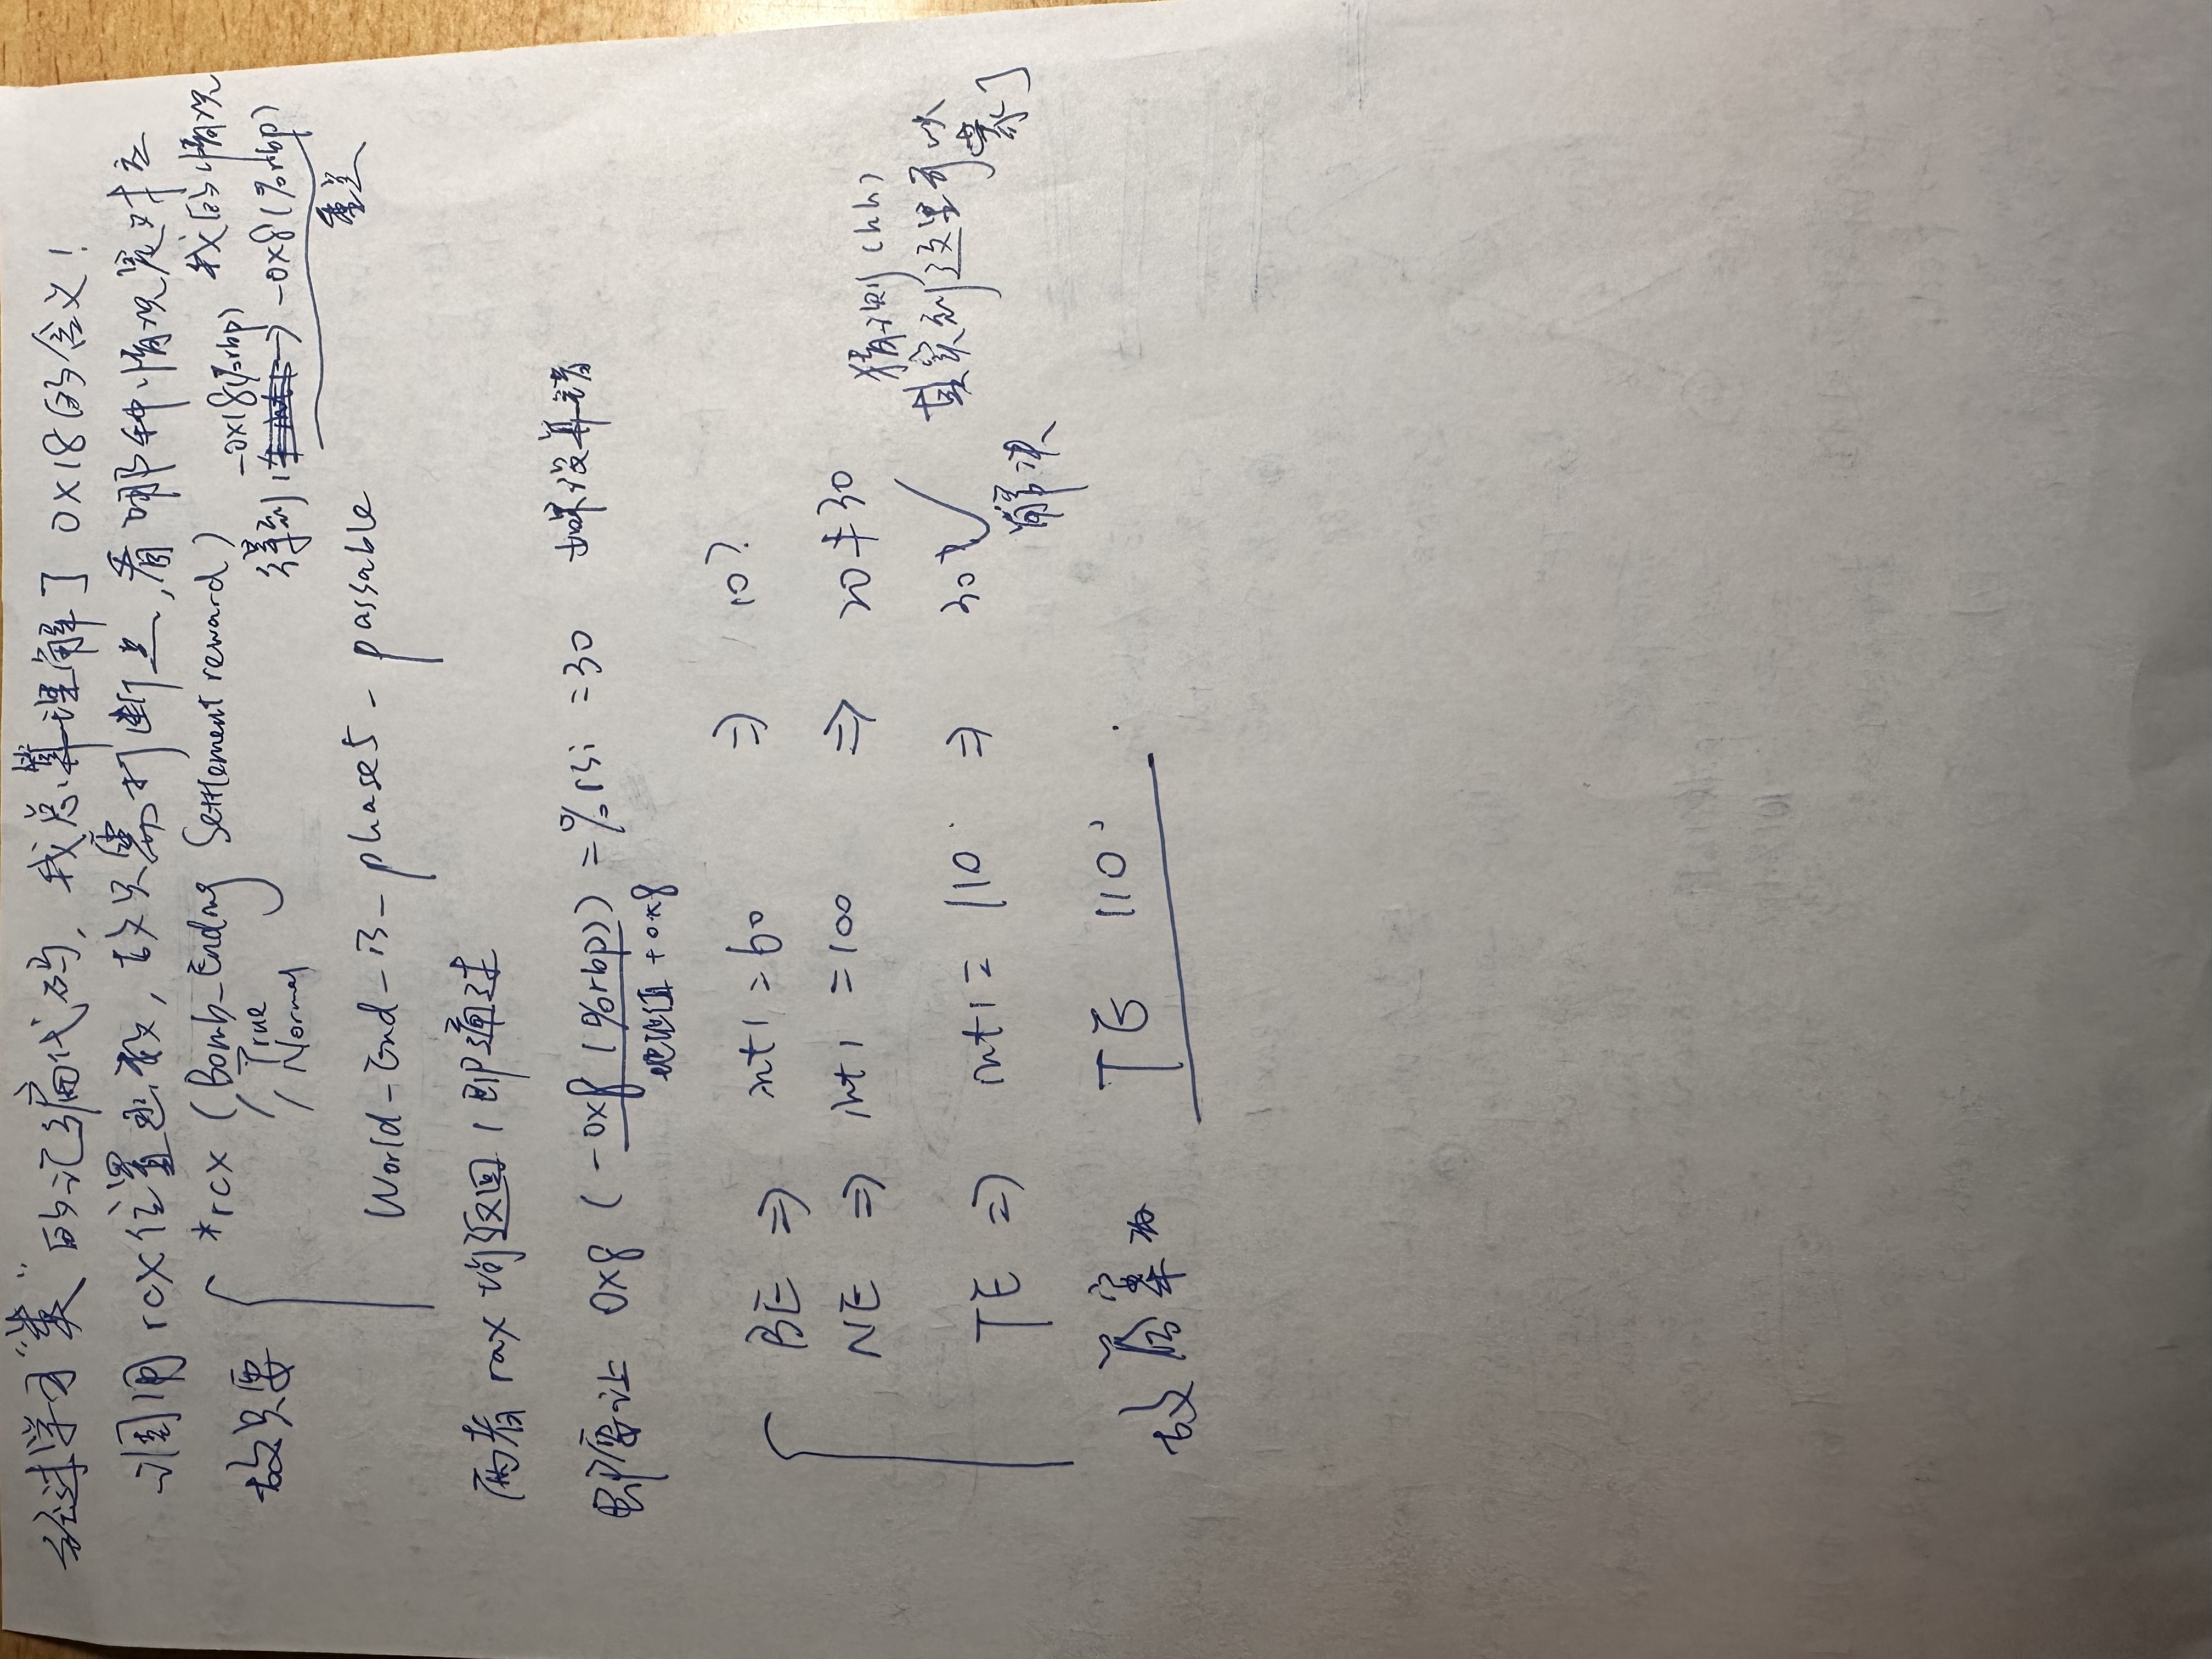 经过学习“类”的汇编代码，我总算理解了 0x18的含义！
调用 rcx位置函数，故只需打断点，看哪种情况是对应
我的情况
故只要 *rcx (Bomb_Ending Settlement reward)
/ True
/ Normal
得到 -0x18(%rbp) → -0x8(%rbp)
重定
World-End-is-phase5-passable
两者 rax 均返回 1 即通过
即要让 0x8 (-0x8 (%rbp)) = %rsi = 30 如果没算错
地址值 + 0x8
BE ⇒ int1 = 60 ⇒ 10?
NE ⇒ int1 = 100 ⇒ 20≠30
TE ⇒ int1 = 110 ⇒ 30 ✓
解决
猜测 (hh)
其实到这里可以
蒙了
故答案为 TE 110